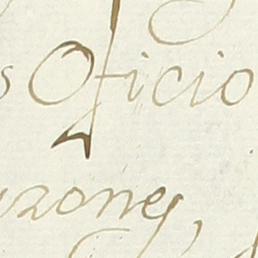 s Oficio
zones,